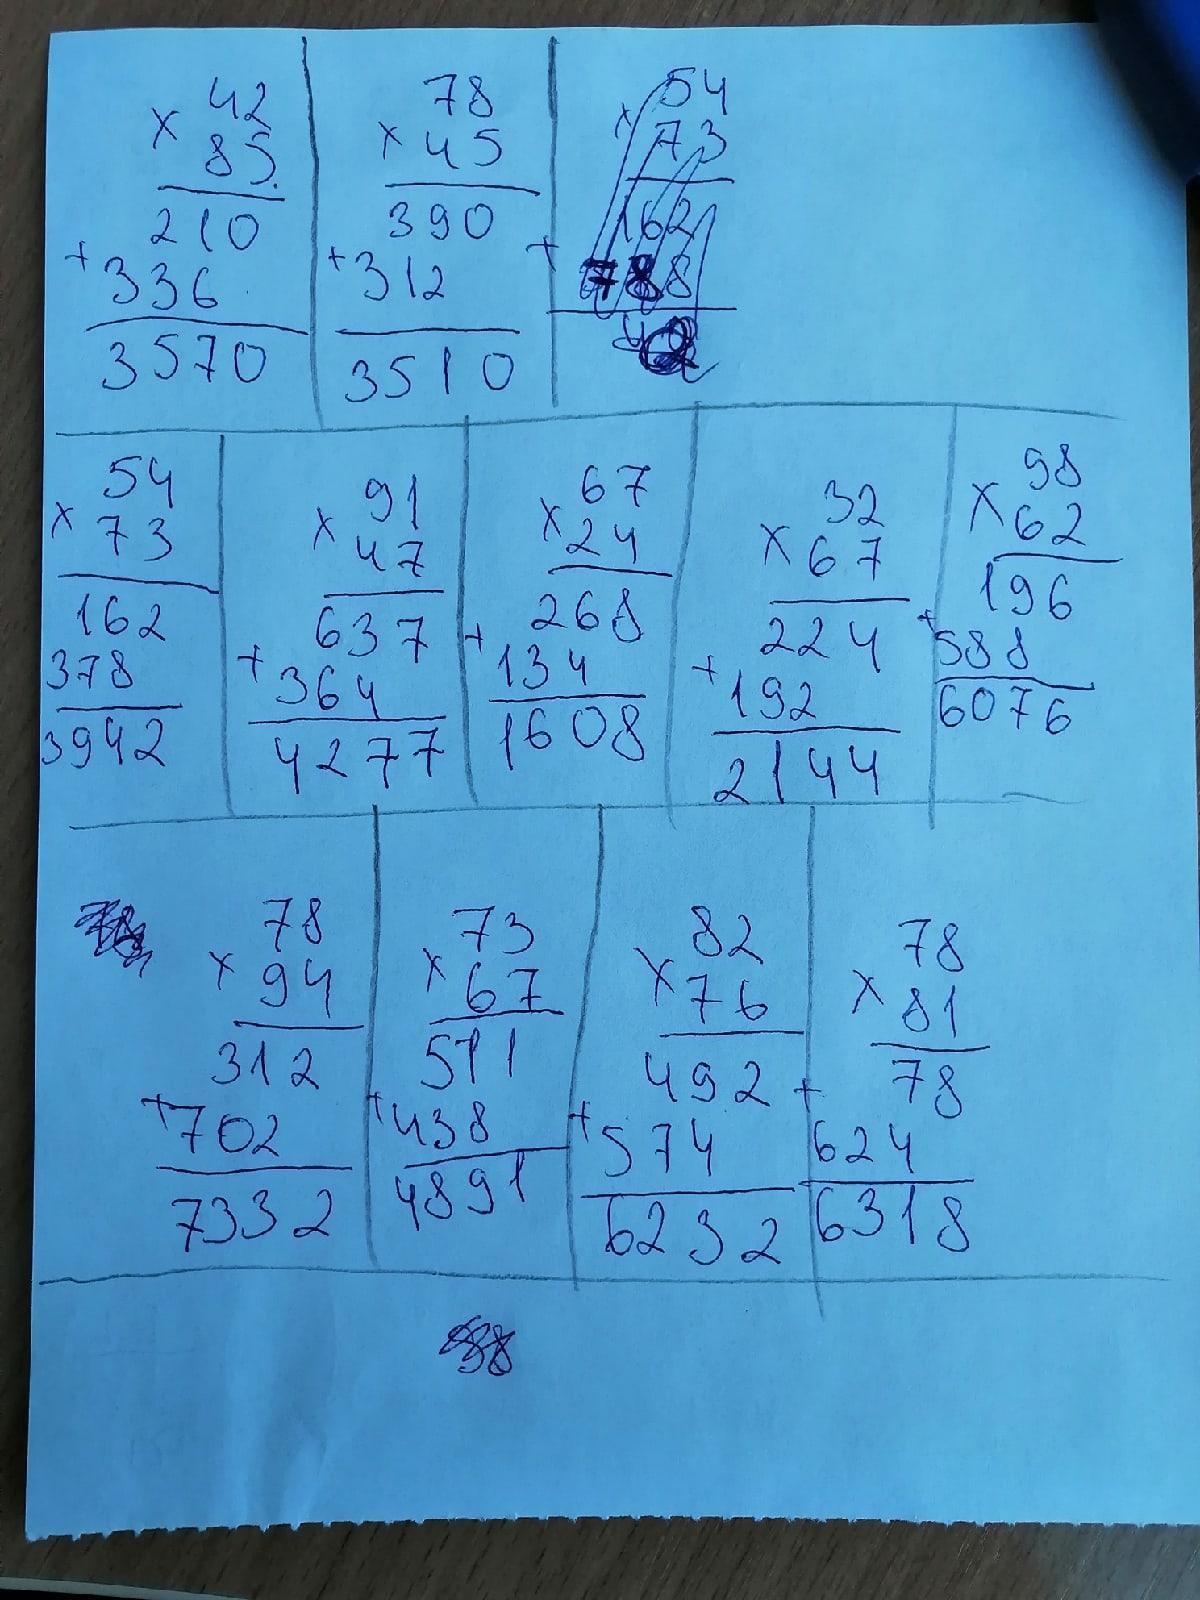 42
× 85
210
+ 336
3570
78
× 45
390
+ 312
3510
54
× 73
162
+ 788
54
× 73
162
378
3942
91
× 47
637
+ 364
4277
67
× 24
268
+ 134
1608
32
× 67
224
+ 192
2144
98
× 62
196
+ 588
6076
78
× 94
312
+ 702
7332
73
× 67
511
+ 438
4891
82
× 76
492
+ 574
6232
78
× 81
78
+ 624
6318